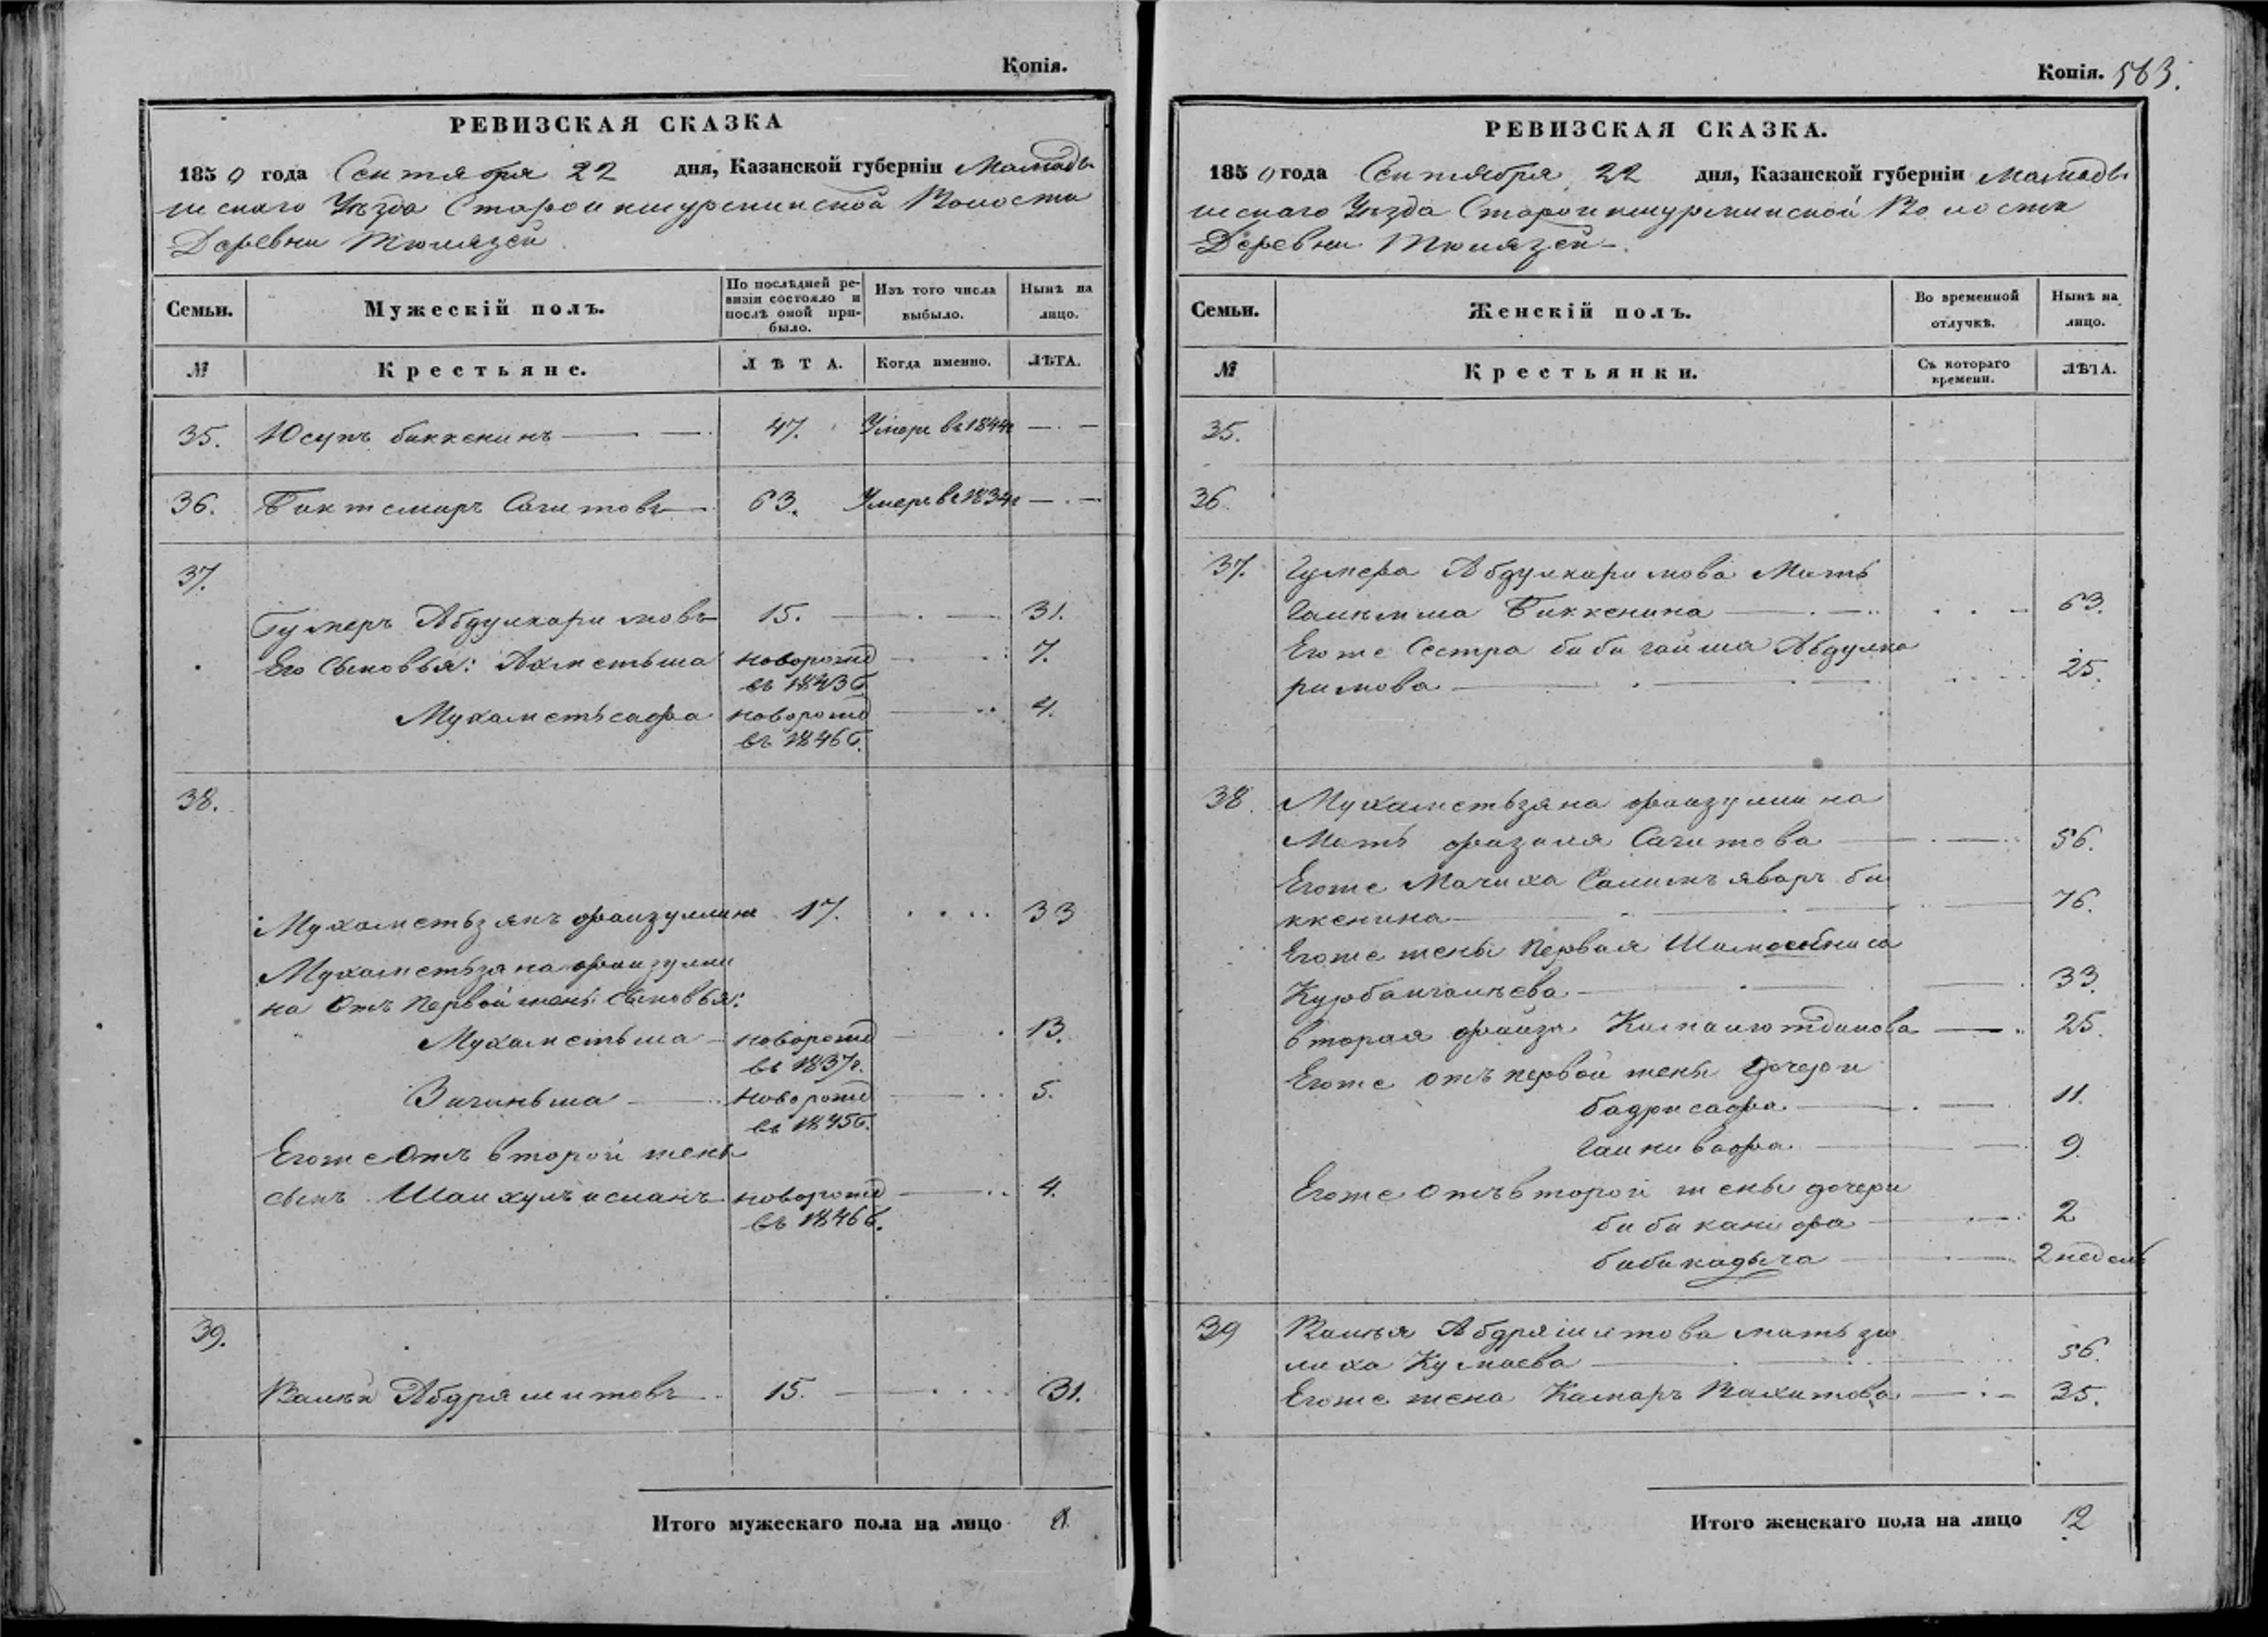 Копія.
РЕВИЗСКАЯ СКАЗКА
1850 года Сентября 22 дня, Казанской губерніи Мамады
шскаго Уѣзда Старои кшурминской Волости
Деревни Тюлязей
Семьи. Мужескій полъ. По послѣдней ре-визіи состояло и послѣ оной при-было. Изъ того числа выбыло. Нынѣ на лицо.
№ Крестьяне. ЛѢТА. Когда именно. ЛѢТА.
35. Юсупъ биккенинъ 47. Умеръ въ 1844г — . —
36. Биктемиръ Сагитовъ 63. Умеръ въ 1834г — . —
37.
Гумеръ Абдулкаримовъ 15. 31.
Его Сыновья: Ахметьша новорожд 7.
въ 1843г
Мухаметьсафа новорожд 4.
въ 1846г.
38.
Мухаметьзянъ фаизуллинъ 17. 33
Мухаметьзяна фаизулли
на Отъ первой жены Сыновья:
Мухаметьша новорожд 13.
въ 1837г.
Зиганьша новорожд 5.
въ 1845г.
Егоже Отъ второй жены
сынъ Шаихулъисламъ новорожд 4.
въ 1846г.
39.
Валѣй Абдряшитовъ 15. 31.
Итого мужескаго пола на лицо 8
Копія. 563.
РЕВИЗСКАЯ СКАЗКА.
1850 года Сентября 22 дня, Казанской губерніи Мамады
шскаго Уѣзда Старои кшурминской Волости
Деревни Тюлязей
Семьи. Женскій полъ. Во временной отлучкѣ. Нынѣ на лицо.
№ Крестьянки. Съ котораго времени. ЛѢТА.
35.
36
37. Гумера Абдулкаримова Мать
Галима Биккенина 63.
Егоже Сестра биби гайша Абдулка
римова 25.
38. Мухаметьзяна фаизуллина
Мать фазиля Сагитова 56.
Егоже Мачиха Салимъяваръ би
ккенина 76.
Егоже жены первая Шамсебниса
Курбангалѣева 33.
вторая фаиза Камалютдинова 25.
Егоже отъ первой жены дочери
бадрисафа 11.
гайнивафа 9.
Егоже отъ второй жены дочери
биби канифа 2
бибикадыча 2 недель
39 Валѣя Абдряшитова мать зю
лиха Кумаева 56.
Егоже жена Камаръ Вахитова 35.
Итого женскаго пола на лицо 12